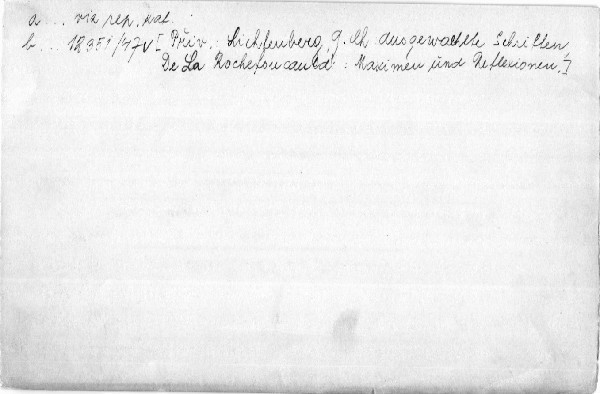 a ... viz rep. kat.
b ... 12351/47 V [Přiv.: Lichfenberg, G. Ch. ausgewaehlte Schriften,
De La Rochefoucauld: Maximen und Reflexionen.]